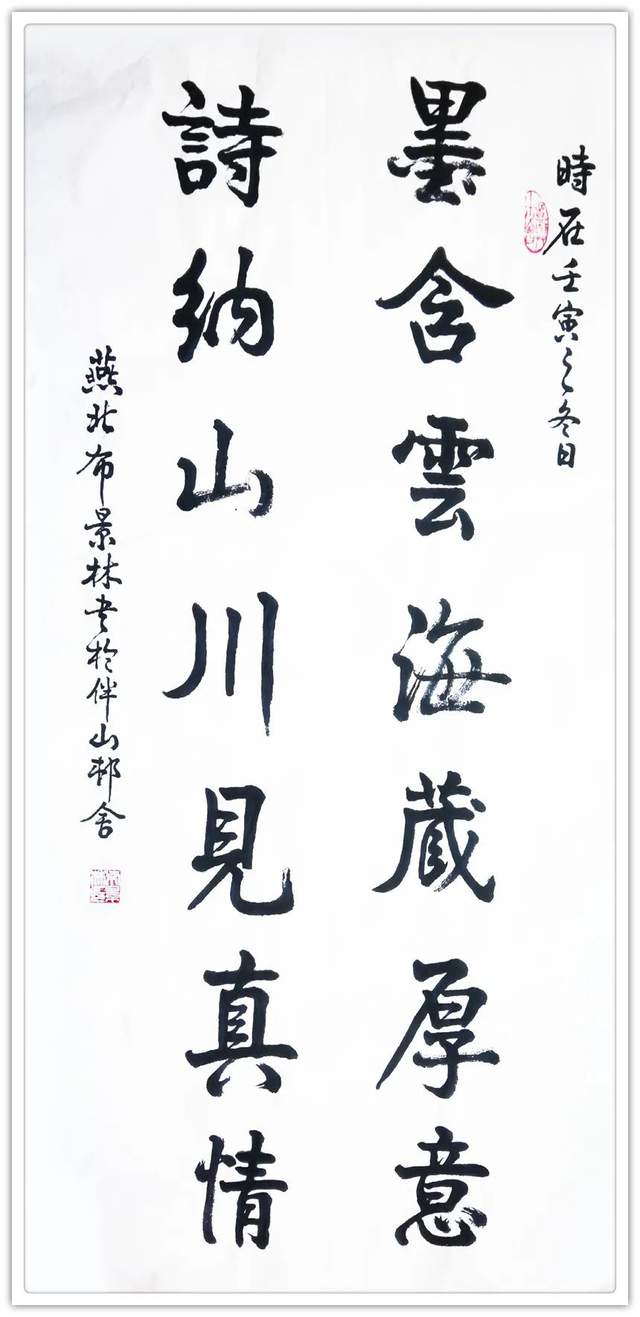 時在壬寅之冬日
墨含雲海蔵厚意
詩納山川見真情
燕北布景林书於伴山邨舍